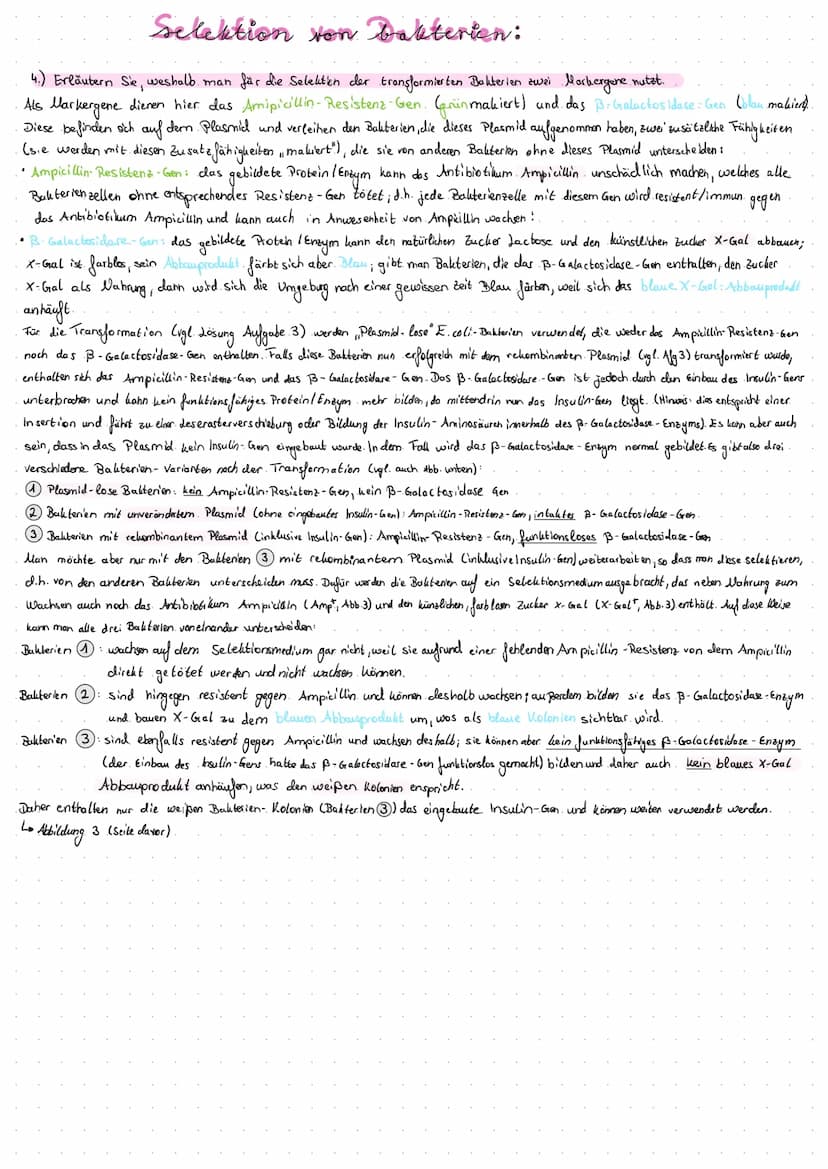 Selektion von bakterien:
4.) Erläutern Sie, weshalb man für die Selektion der transformierten Bakterien zwei Markergene nutzt.
Als Markergene dienen hier das Amipicillin-Resistenz-Gen (grünmakiert) und das β-Galactosidase-Gen (blau makiert).
Diese befinden sich auf dem Plasmid und verleihen den Bakterien, die dieses Plasmid aufgenommen haben, zwei zusätzliche Fähigkeiten
(sie werden mit diesen Zusatzfähigkeiten „makiert"), die sie von anderen Bakterien ohne dieses Plasmid unterscheiden:
• Ampicillin-Resistenz-Gen: das gebildete Protein/Enzym kann das Antibiotikum Ampicillin unschädlich machen, welches alle
Bakterienzellen ohne entsprechendes Resistenz-Gen tötet; d.h. jede Bakterienzelle mit diesem Gen wird resistent/immun gegen
das Antibiotikum Ampicillin und kann auch in Anwesenheit von Ampicillin wachsen!
• β-Galactosidase-Gen: das gebildete Protein/Enzym kann den natürlichen Zucker Lactose und den künstlichen Zucker X-Gal abbauen;
X-Gal ist farblos, sein Abbauprodukt färbt sich aber Blau; gibt man Bakterien, die das β-Galactosidase-Gen enthalten, den Zucker
X-Gal als Nahrung, dann wird sich die Umgebung nach einer gewissen Zeit Blau färben, weil sich das blaue X-Gal-Abbauprodukt
anhäuft.
Für die Transformation (vgl. Lösung Aufgabe 3) werden „Plasmid-lose" E.coli-Bakterien verwendet, die weder das Ampicillin-Resistenz-Gen
noch das β-Galactosidase-Gen enthalten. Falls diese Bakterien nun erfolgreich mit dem rekombinanten Plasmid (vgl. Afg 3) transformiert wurde,
enthalten sich das Ampicillin-Resistenz-Gen und das β-Galactosidase-Gen. Das β-Galactosidase-Gen ist jedoch durch den Einbau des Insulin-Gens
unterbrochen und kann kein funktionsfähiges Protein/Enzym mehr bilden, da mittendrin nun das Insulin-Gen liegt. (Hinweis: dies entspricht einer
Insertion und führt zu einer Leserasterverschiebung oder Bildung der Insulin-Aminosäuren innerhalb des β-Galactosidase-Enzyms). Es kann aber auch
sein, dass in das Plasmid kein Insulin-Gen eingebaut wurde. In dem Fall wird das β-Galactosidase-Enzym normal gebildet. Es gibt also drei
verschiedene Bakterien-Varianten nach der Transformation (vgl. auch Abb. unten):
① Plasmid-lose Bakterien: kein Ampicillin-Resistenz-Gen, kein β-Galactosidase Gen
② Bakterien mit unverändertem Plasmid (ohne eingebautes Insulin-Gen): Ampicillin-Resistenz-Gen, intaktes β-Galactosidase-Gen
③ Bakterien mit rekombinantem Plasmid (inklusive Insulin-Gen): Ampicillin-Resistenz-Gen, funktionsloses β-Galactosidase-Gen
Man möchte aber nur mit den Bakterien ③ mit rekombinantem Plasmid (inklusive Insulin-Gen) weiterarbeiten, so dass man diese selektieren,
d.h. von den anderen Bakterien unterscheiden muss. Dafür werden die Bakterien auf ein Selektionsmedium ausgebracht, das neben Nahrung zum
Wachsen auch noch das Antibiotikum Ampicillin (Amp⁺, Abb.3) und den künzlichen, farblosen Zucker X-Gal (X-Gal⁺, Abb.3) enthält. Auf diese Weise
kann man alle drei Bakterien voneinander unterscheiden:
Bakterien ①: wachsen auf dem Selektionsmedium gar nicht, weil sie aufrund einer fehlenden Ampicillin-Resistenz von dem Ampicillin
direkt getötet werden und nicht wachsen können.
Bakterien ②: sind hingegen resistent gegen Ampicillin und können deshalb wachsen; außerdem bilden sie das β-Galactosidase-Enzym
und bauen X-Gal zu dem blauen Abbauprodukt um, was als blaue Kolonien sichtbar wird.
Bakterien ③: sind ebenfalls resistent gegen Ampicillin und wachsen deshalb; sie können aber kein funktionsfähiges β-Galactosidase-Enzym
(der Einbau des Insulin-Gens hatte das β-Galactosidase-Gen funktionslos gemacht) bilden und daher auch kein blaues X-Gal
Abbauprodukt anhäufen, was den weißen Kolonien enspricht.
Daher enthalten nur die weißen Bakterien-Kolonien (Bakterien ③) das eingebaute Insulin-Gen und können weiter verwendet werden.
↳ Abbildung 3 (Seite davor)